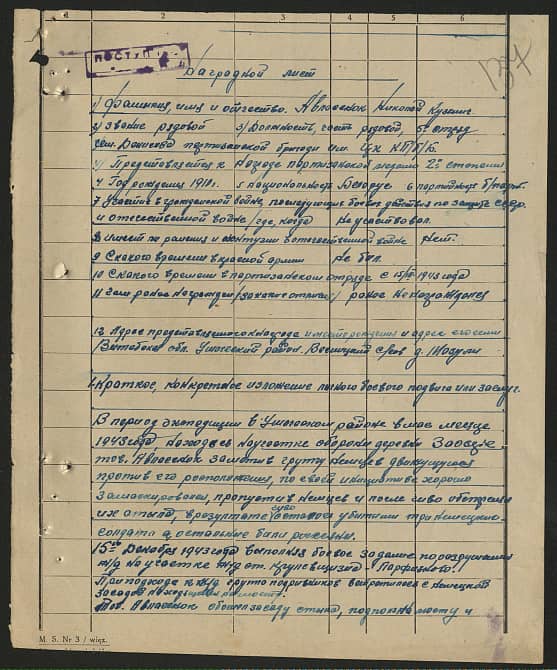 2 3 4 5 6
ПОСТУП
Наградной лист
1) Фамилия, имя и отчество. Авласенок Николай Кузьмич
2) Звание рядовой 3) Должность, часть рядовой, 5й отряд
партизанской бригады им. ЦК КП/б/Б
Представляется к награде партизанской медалью 2й степени
4 Год рождения 1910г. 5 национальность Белорус 6 партийность б/парт.
7 Участие в гражданской войне, последующих боевых действиях по защите СССР
и отечественной войне /где, когда Не участвовал.
8 имеет ли ранения и контузии в отечественной войне Нет.
9 С какого времени в красной армии Не был.
10 С какого времени в партизанском отряде с 1943 года
11 Чем ранее награжден /за какие отличия/ ранее не награждался
12 Адрес представляемого к награде и место рождения и адрес его семьи
Витебская обл. Ушачский район. с/сов д.
Краткое, конкретное изложение личного боевого подвига или заслуг.
В период экспедиции в Ушачском районе в мае месяце
1943 года находясь на участке обороны деревни
тов. Авласенок заметив группу немцев движущуюся
против его расположения, по своей инициативе хорошо
замаскировался, пропустил немцев и после чиво обстрелял
их стыла, в результате чиво осталось убитыми три немецких
солдата а остальные были рассеяны.
15го Декабря 1943 года выполняя боевое задание по разрушению
ж/д на участке ж/д от.
При подходе к ж/д группа подрывников встретилась с немецкой
засадой
Тов. Авласенок обошел засаду стыла, подполз к мосту и
M. S. Nr 3 / więz.